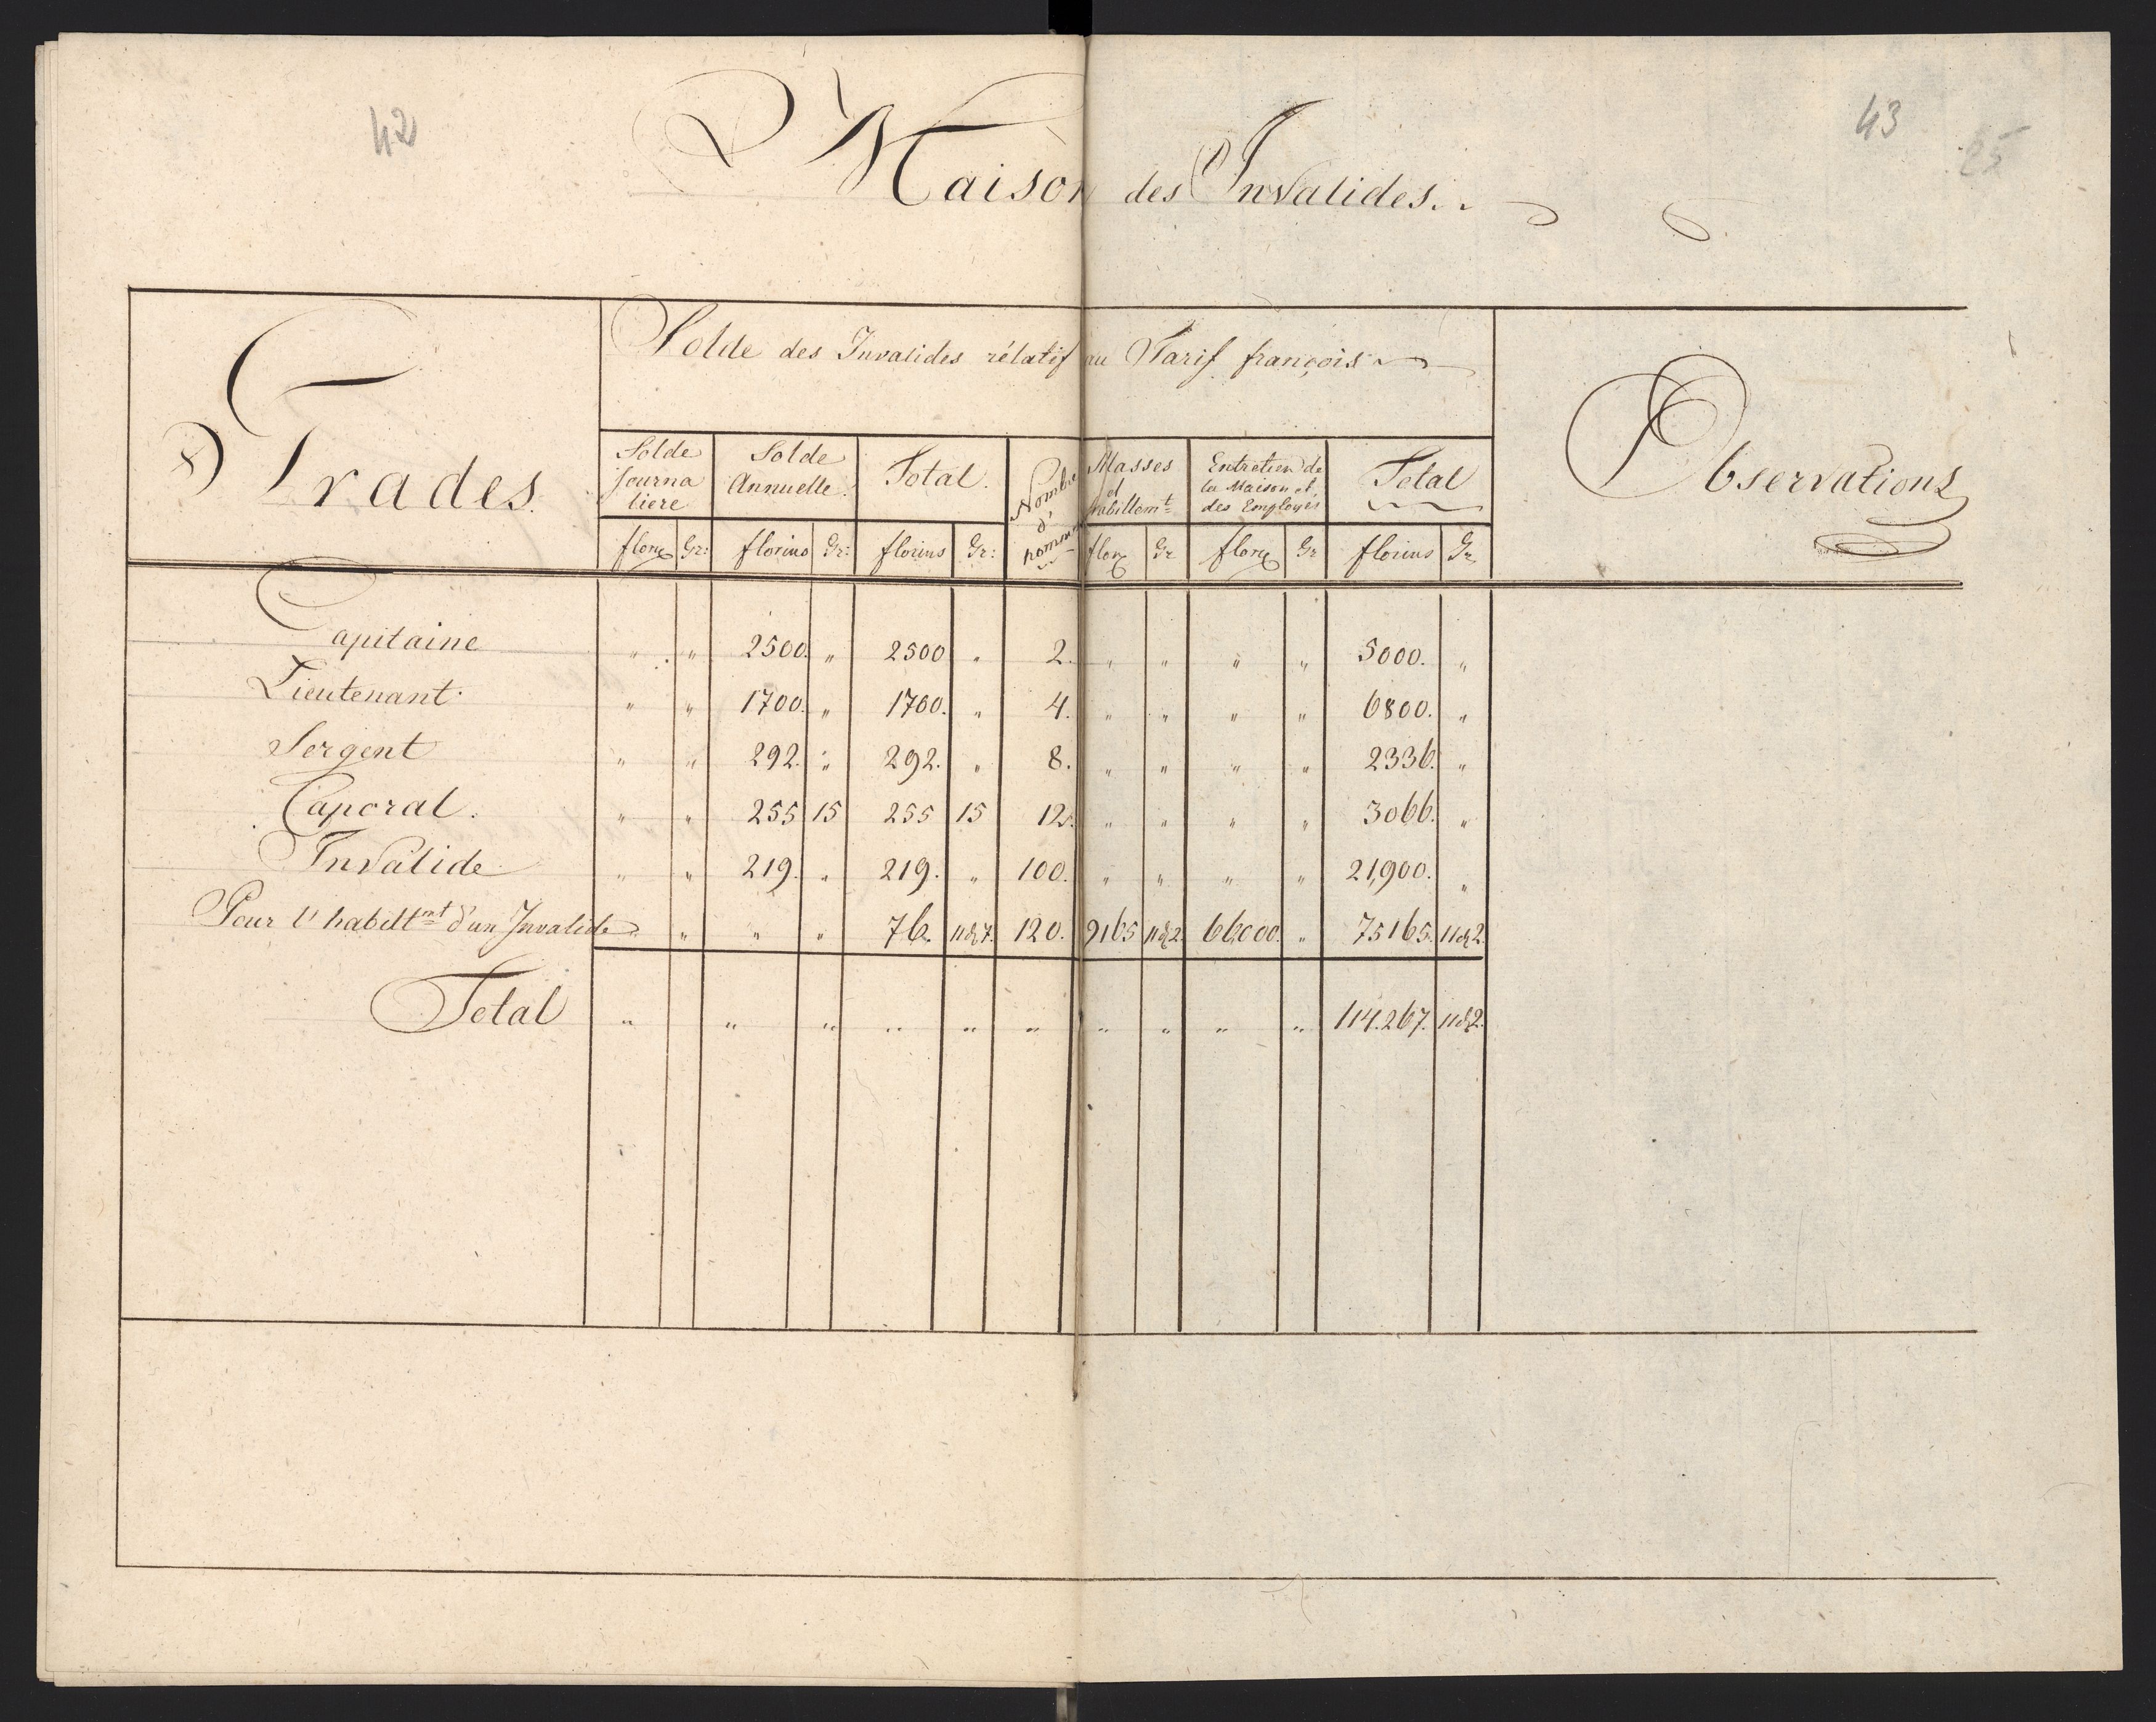 42
43
25
Maison des Invalides.
Grades.
Solde des Invalides rélatif au Tarif françois
Observations
Solde Journa liere
Solde Annuelle.
Total.
Nombre d'hommes
Masses et habillemt
Entretien de la Maison et des Employés
Total
flor: Gr: florins Gr: florins Gr: flor: Gr flor: Gr florins Gr
Capitaine " " 2500. " 2500 " 2. " " " " 5000. "
Lieutenant " " 1700. " 1700. " 4. " " " " 6800. "
Sergent " " 292. " 292. " 8. " " " " 2336. "
Caporal. " " 255 15 255 15 12. " " " " 3066. "
Invalide " " 219. " 219. " 100. " " " " 21,900. "
Pour l'habillt mt d'un Invalide " " " 76. 11 & 7. 120. 9165 11 & 2 66000. " 75165. 11 & 2.
Total " " " " " " " " " " 114.267. 11 & 2.